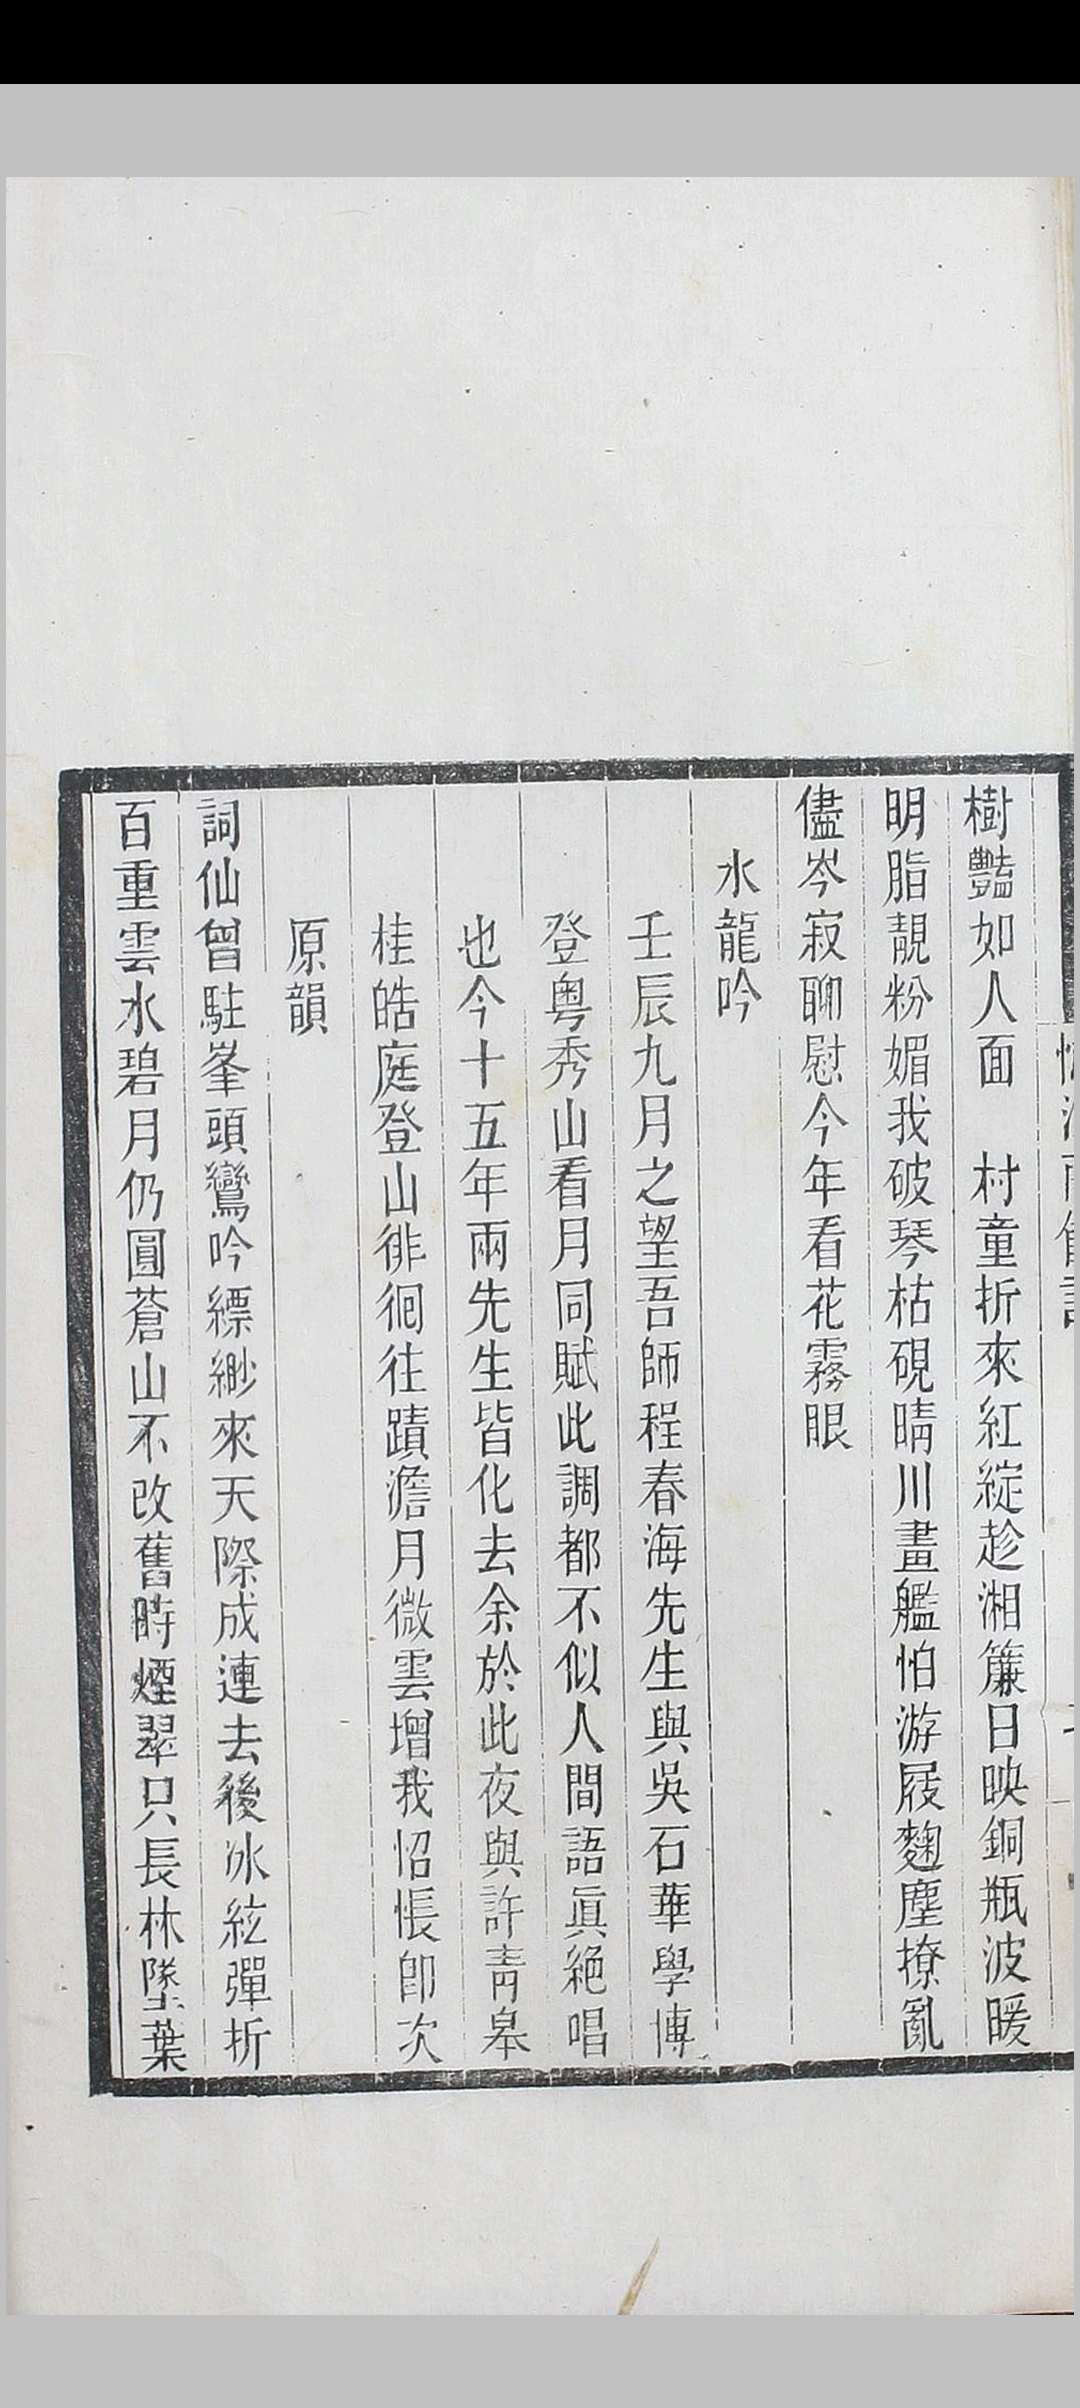 樹豔如人面　村童折來紅綻趁湘簾日映銅瓶波暖
明脂靚粉媚我破琴枯硯晴川畫艦怕游屐麴塵撩亂
儘岑寂聊慰今年看花霧眼
水龍吟
壬辰九月之望吾師程春海先生與吳石華學博
登粤秀山看月同賦此調都不似人間語眞絶唱
也今十五年兩先生皆化去余於此夜與許靑皋
桂皓庭登山徘徊往蹟澹月微雲增我怊悵卽次
原韻
詞仙曾駐峯頭鸞吟縹緲來天際成連去後冰絃彈折
百重雲水碧月仍圓蒼山不改舊時煙翠只長林墜葉